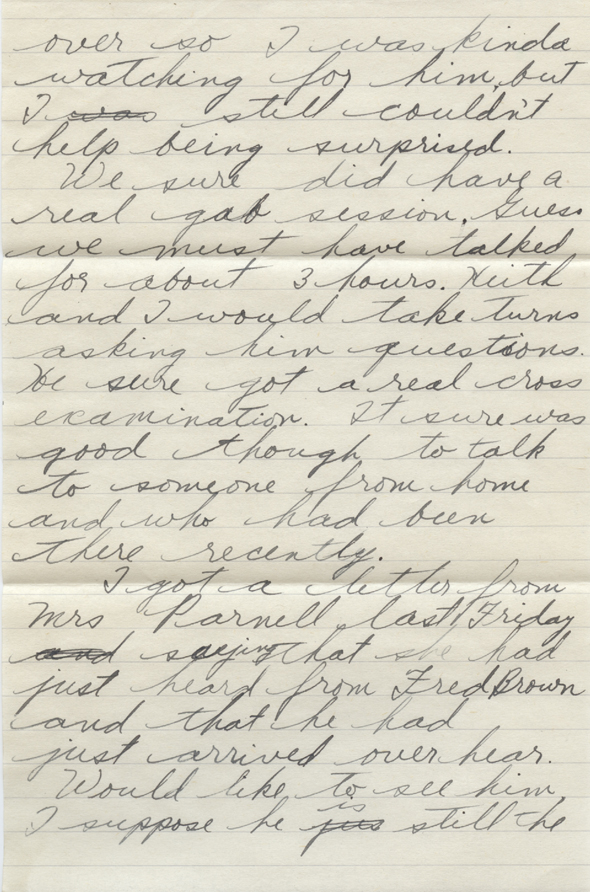 over so I was kinda
watching for him, but
I was still couldn't
help being surprised.
We sure did have a
real gab session. Guess
we must have talked
for about 3 hours. Keith
and I would take turns
asking him questions.
He sure got a real cross
examination. It sure was
good though to talk
to someone from home
and who had been
there recently.
I got a letter from
Mrs Parnell last Friday
and saying that she had
just heard from Fred Brown
and that he had
just arrived over hear.
Would like to see him.
is
I suppose he still the